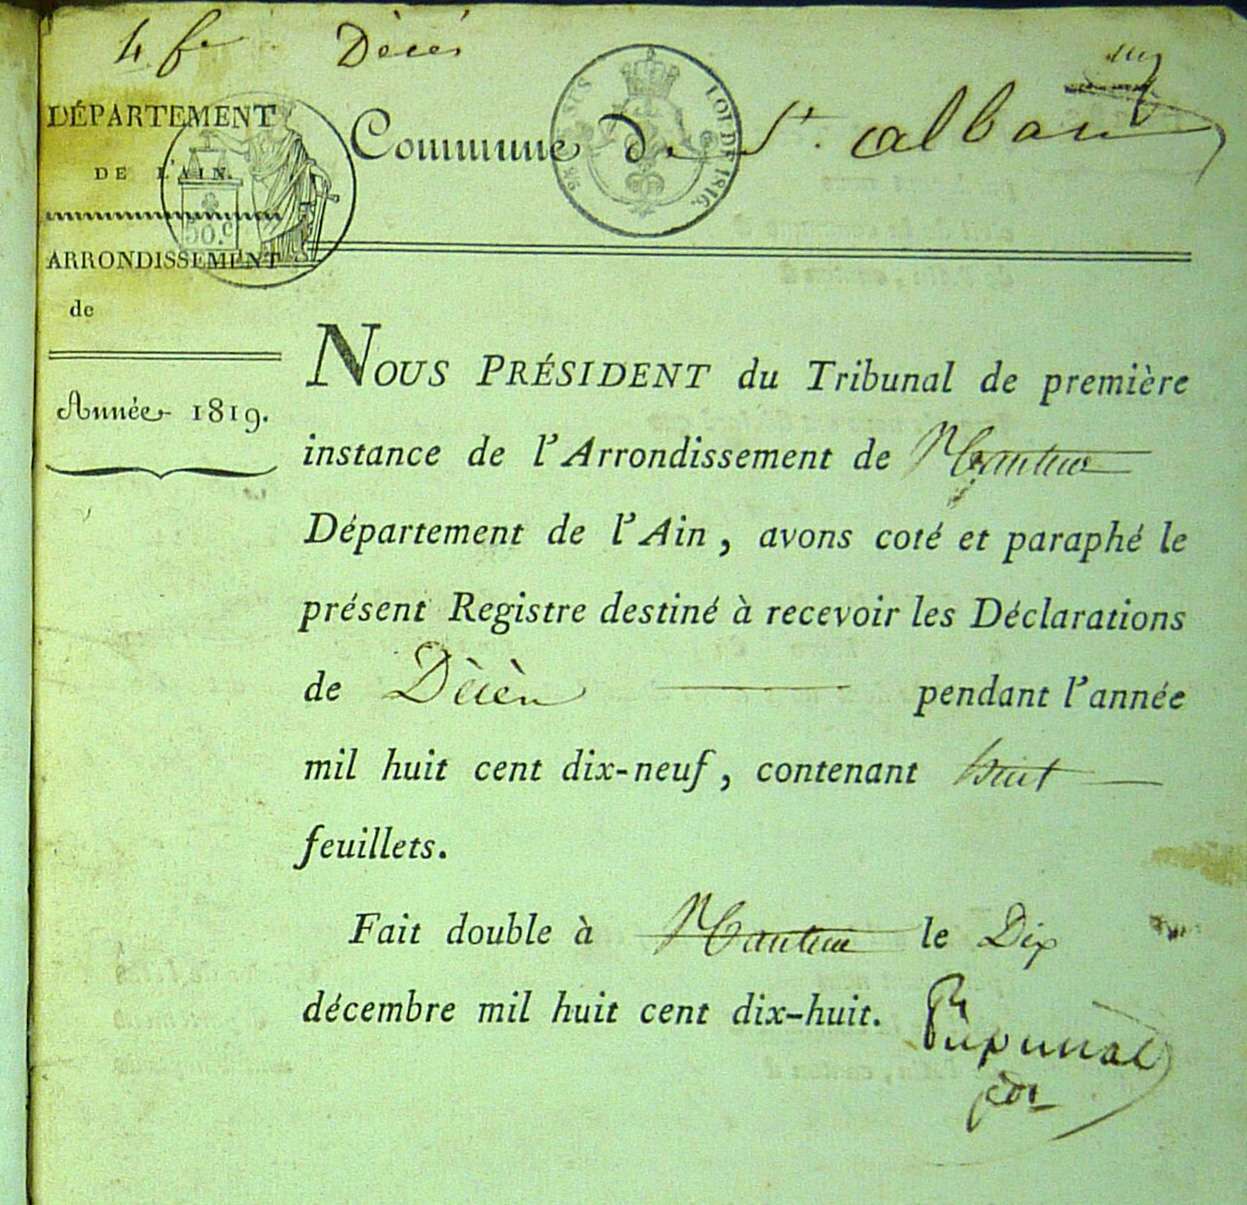 4 fr Décés
DÉPARTEMENT
DE L'AIN.
Commune de St. alban
SUS
LOI DE 1816.
50.c
ARRONDISSEMENT
de
Année 1819.
NOUS PRÉSIDENT du Tribunal de première
instance de l'Arrondissement de Nantua
Département de l'Ain, avons coté et paraphé le
présent Registre destiné à recevoir les Déclarations
de Décès pendant l'année
mil huit cent dix-neuf, contenant huit
feuillets.
Fait double à Nantua le Dix
décembre mil huit cent dix-huit.